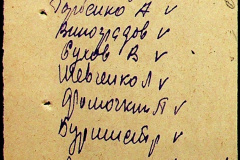 Горбенко А v
Виноградов v
Сухов В v
Шевченко Л v
Фромочкин П v
Бурмистр v